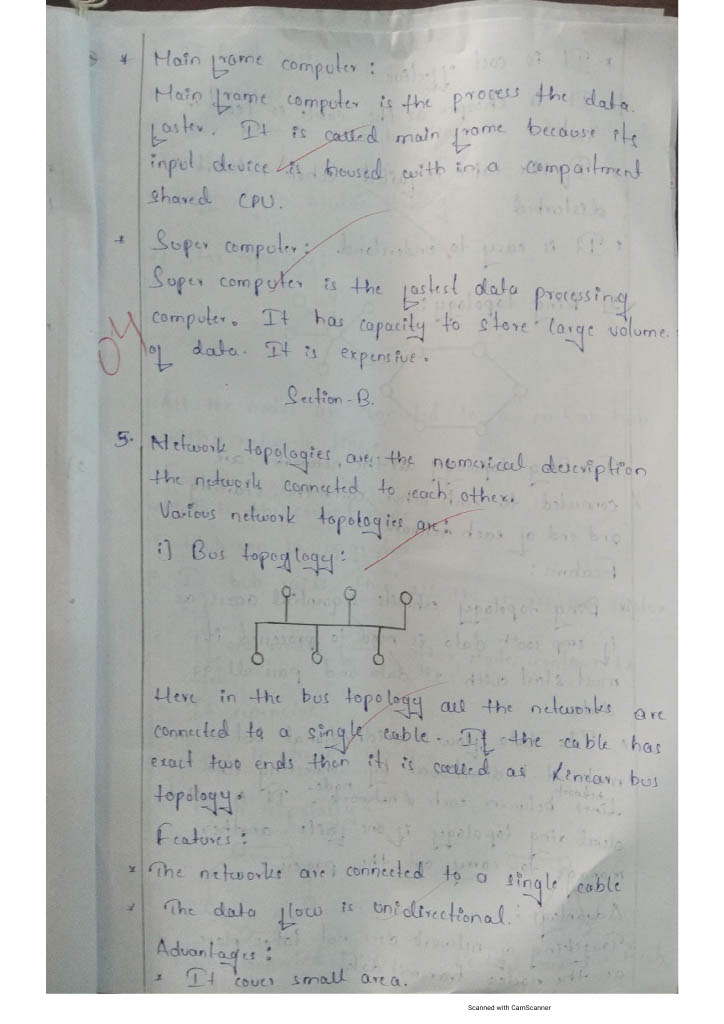 * Main frame computer :
Main frame computer is the process the data
faster. It is called main frame because its
input device is housed with in a compartment
shared CPU.
* Super computer :
Super computer is the fastest data processing
computer. It has capacity to store large volume
of data. It is expensive.
04
Section-B.
5. Network topologies are the numerical description
the network connected to each other.
Various network topologies are:
i) Bus topoglogy :
Here in the bus topology all the networks are
connected to a single cable. If the cable has
exact two ends then it is called as Linear bus
topology.
Features :
* The networks are connected to a single cable
* The data flow is unidirectional.
Advantages :
* It cover small area.
Scanned with CamScanner